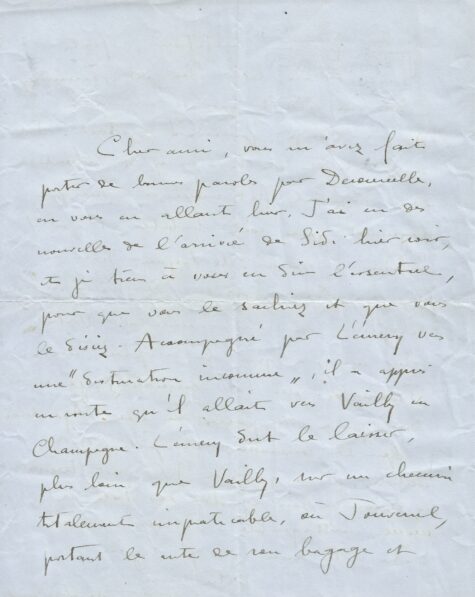 Cher ami, vous m'avez fait
porter de bonnes paroles par Decourcelle,
en vous en allant hier. J'ai eu des
nouvelles de l'arrivée de Sidi hier soir,
et je tiens à vous en dire l'essentiel,
pour que vous le sachiez et que vous
le disiez. Accompagné par Lémery vers
une "destination inconnue", il a appris
en route qu'il allait vers Vailly en
Champagne. Lémery dut le laisser,
plus loin que Vailly, sur un chemin
totalement impraticable, où Jouvenel,
portant le reste de son bagage et